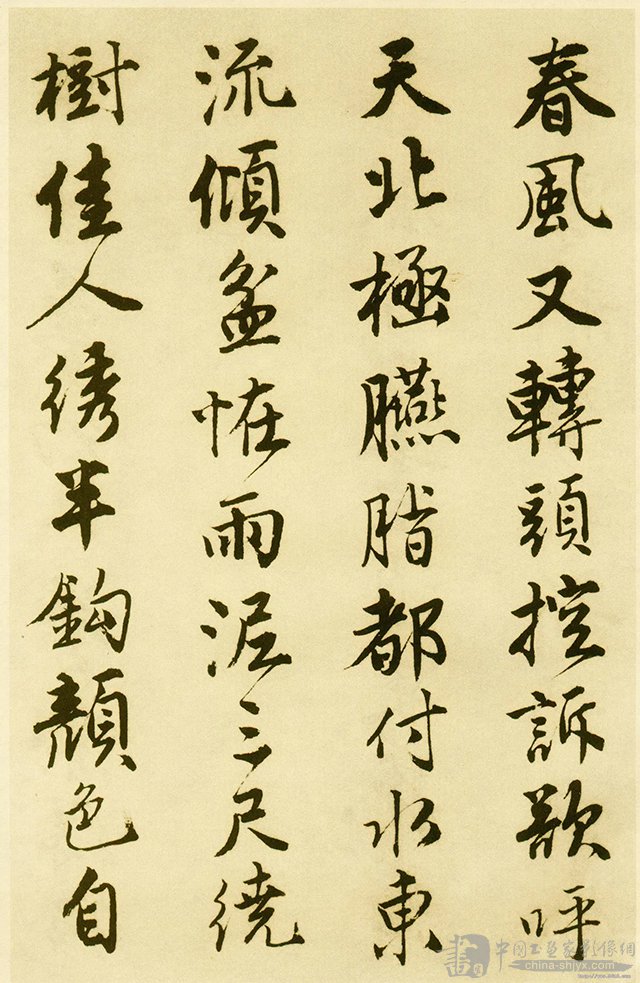 春風又轉頭控訴欲呼
天北極臙脂都付水東
流傾盆恠雨泥三尺繞
樹佳人綉半鈎顏色自
中國書画家影像網
china-shjyx.com